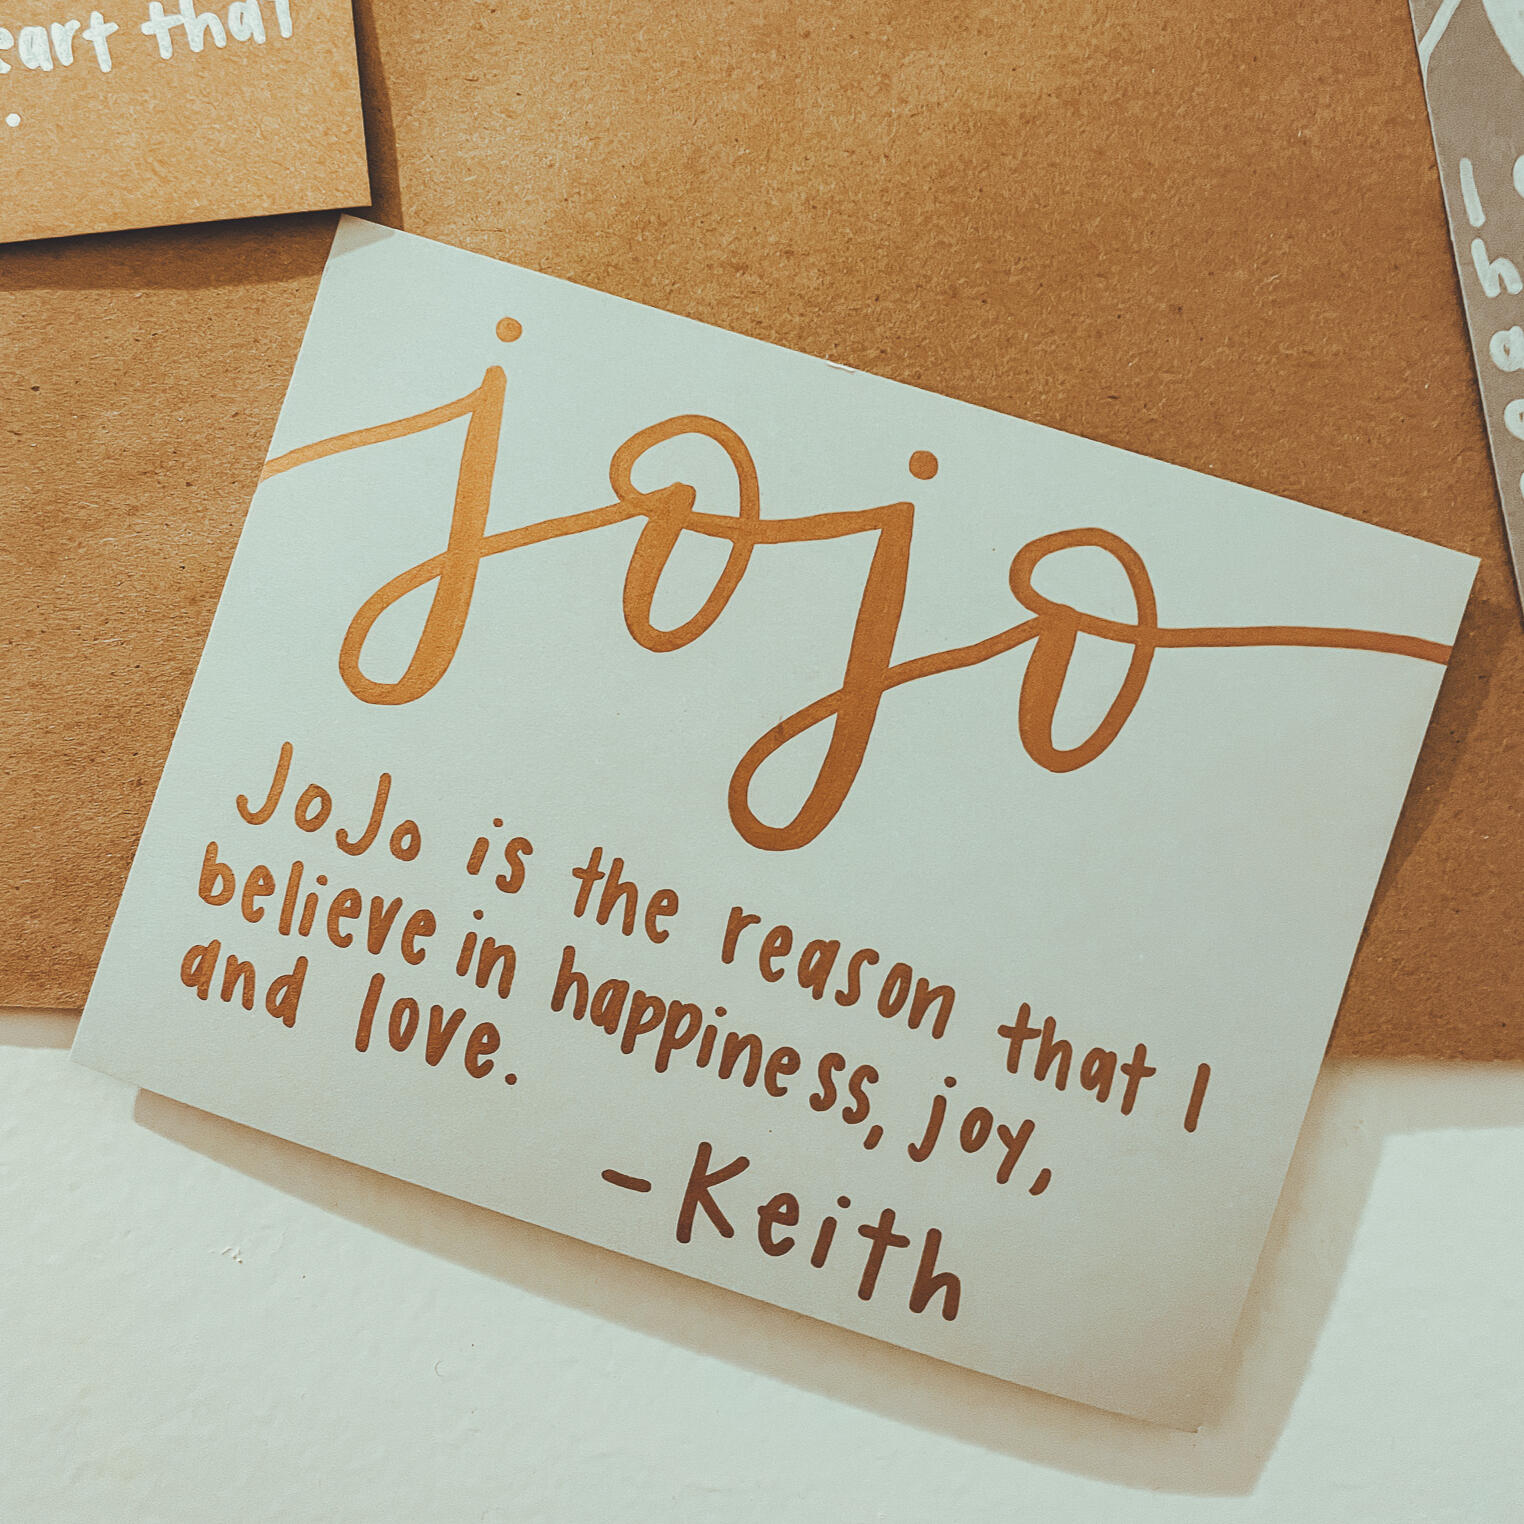 eart that
.
jojo
JoJo is the reason that I
believe in happiness, joy,
and love.
-Keith